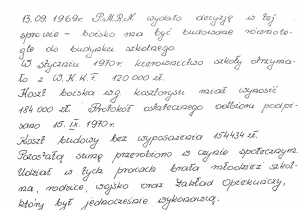 13.09.1969r. P.M.R.N. wydało decyzję w tej
sprawie - boisko ma być budowane równole-
gle do budynku szkolnego
W styczniu 1970r. kierownictwo szkoły otrzyma-
ło z W.K.K.F. 120 000 zł.
Koszt boiska w.g. kosztorysu miał wynosić
184 000 zł. Protokół ostatecznego odbioru podpi-
sano 15. IX. 1970r.
Koszt budowy bez wyposażenia 154434 zł.
Pozostałą sumę przerobiono w czynie społecznym.
Udział w tych pracach brała młodzież szkol-
na, rodzice, wojsko oraz Zakład Opiekuńczy,
który był jednocześnie wykonawcą.